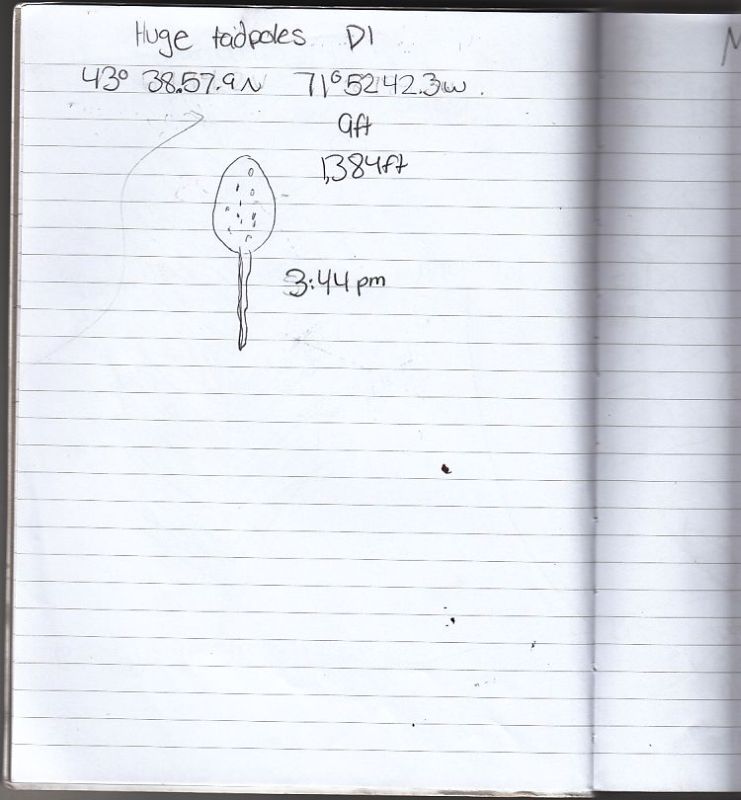 Huge tadpoles D1
43° 38.57.9N 71° 52 42.3W.
9ft
1,384ft
3:44 pm